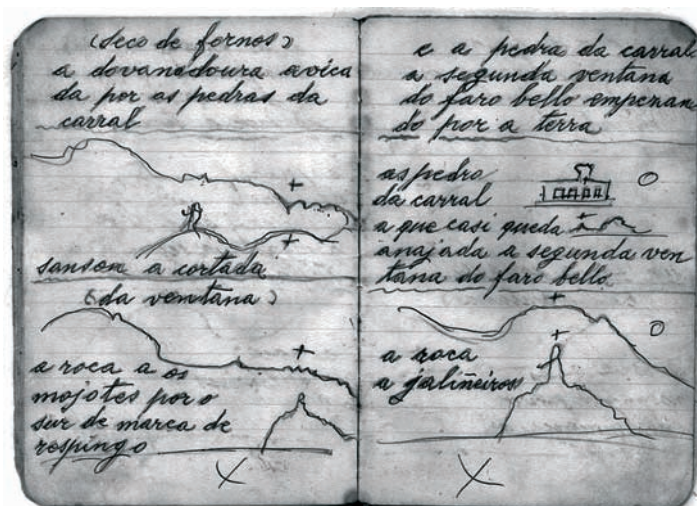 (seco de fornos)
a dovanadoura avica
da por as pedras da
carral
sanson a cortada
(da ventana)
a roca a os
mojotes por o
sur de marca de
respingo
X
e a pedra da carral
a segunda ventana
do faro bello empezan
do por a terra
as pedro
da carral
a que casi queda
anajada a segunda ven
tana do faro bello
a roca
a jaliñeiros
X